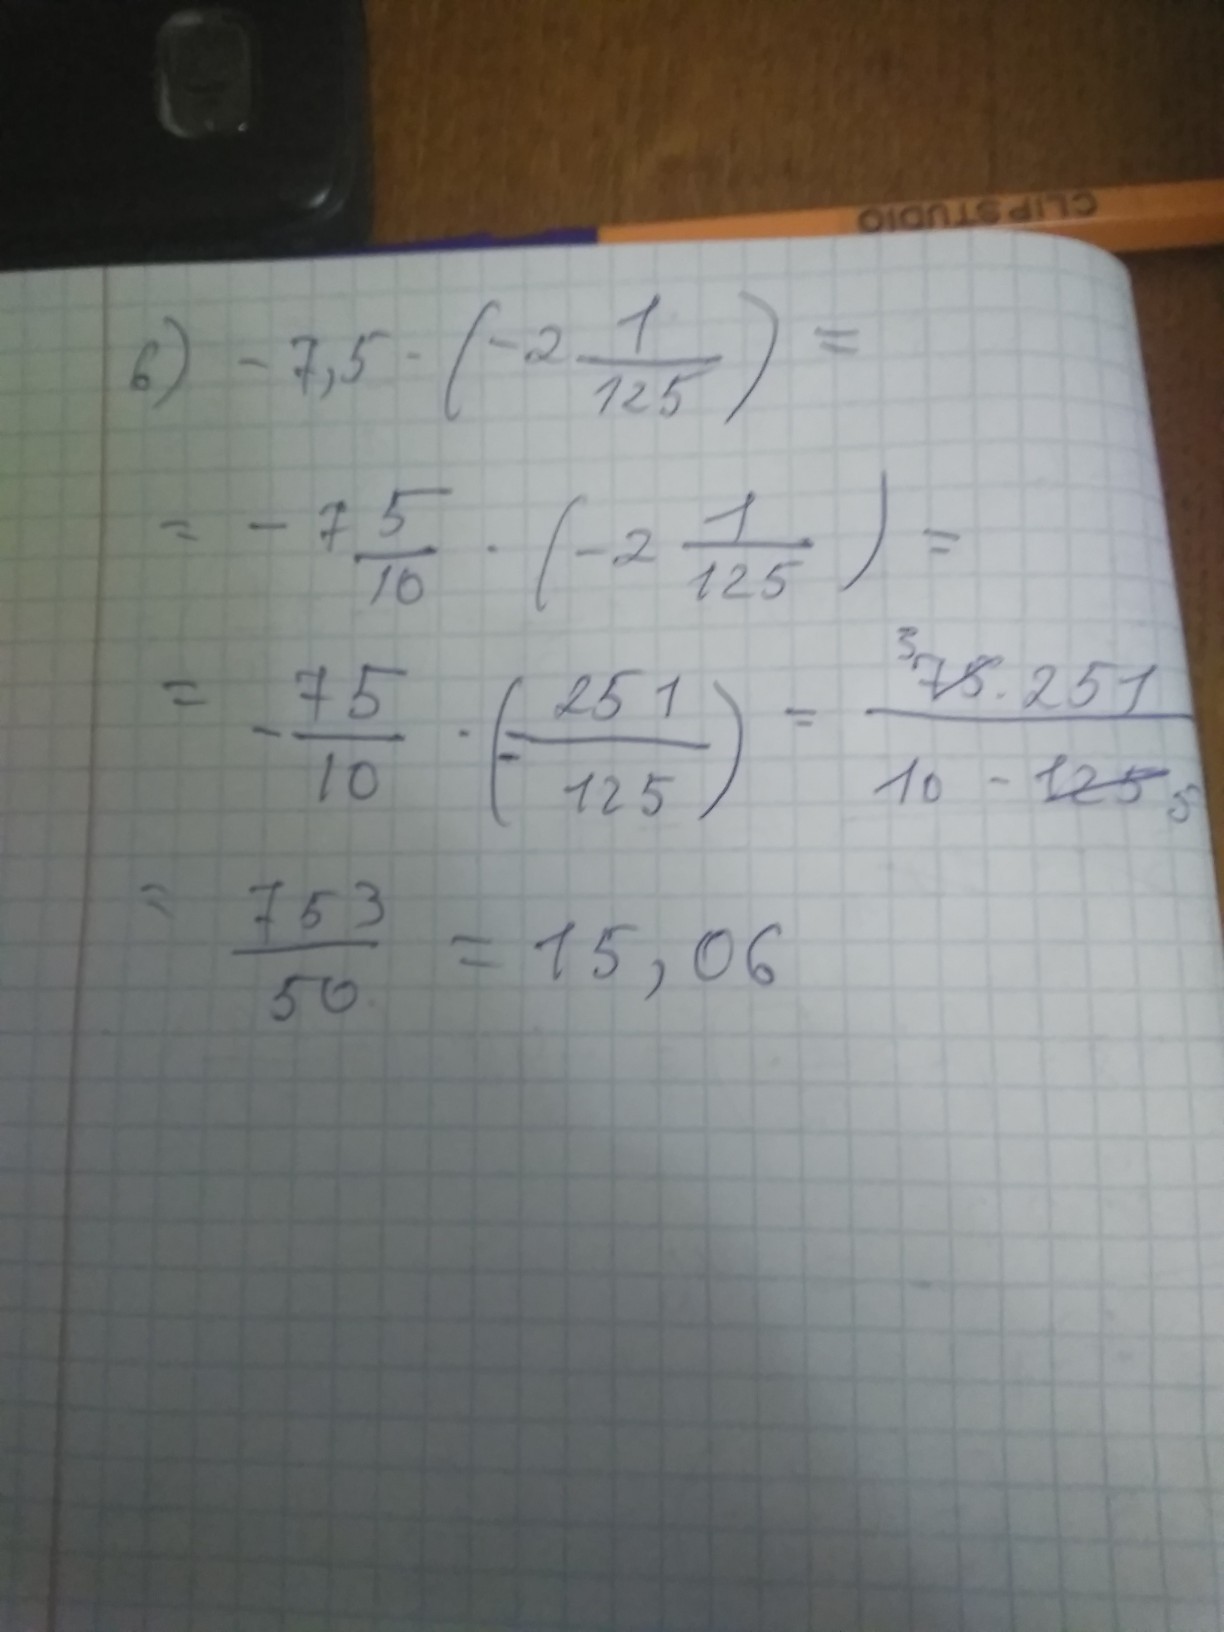 CLIP STUDIO
б) -7,5 · (-2 1/125) =
= -7 5/10 · (-2 1/125) =
= -75/10 · (-251/125) = ³75 · 251/10 - 125 5
= 753/50 = 15,06